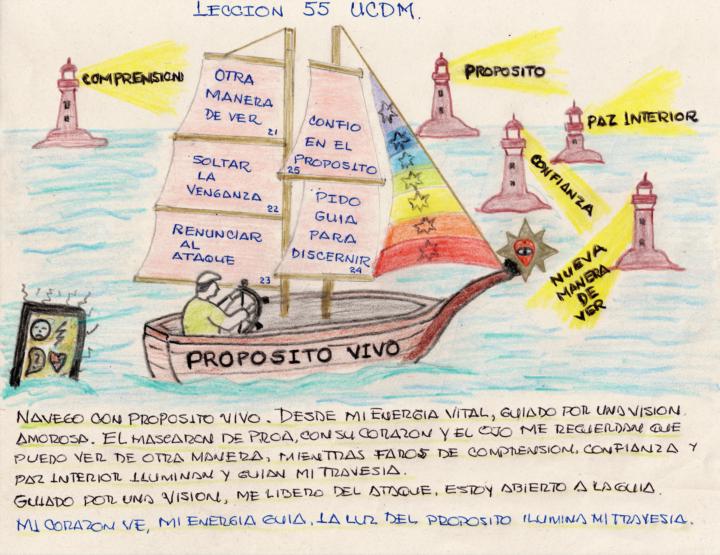 LECCION 55 UCDM.
COMPRENSION
OTRA
MANERA
DE VER
21
SOLTAR
LA
VENGANZA
22
RENUNCIAR
AL
ATAQUE
23
CONFIO
EN EL
PROPOSITO
25
PIDO
GUIA
PARA
DISCERNIR
24
PROPOSITO
PAZ INTERIOR
CONFIANZA
NUEVA
MANERA
DE
VER
PROPOSITO VIVO
NAVEGO CON PROPOSITO VIVO. DESDE MI ENERGIA VITAL, GUIADO POR UNA VISION
AMOROSA. EL MASCARON DE PROA, CON SU CORAZON Y EL OJO ME RECUERDAN QUE
PUEDO VER DE OTRA MANERA, MIENTRAS FAROS DE COMPRENSION, CONFIANZA Y
PAZ INTERIOR ILUMINAN Y GUIAN MI TRAVESIA.
GUIADO POR UNA VISION, ME LIBERO DEL ATAQUE, ESTOY ABIERTO A LA GUIA.
MI CORAZON VE, MI ENERGIA GUIA. LA LUZ DEL PROPOSITO ILUMINA MI TRAVESIA.